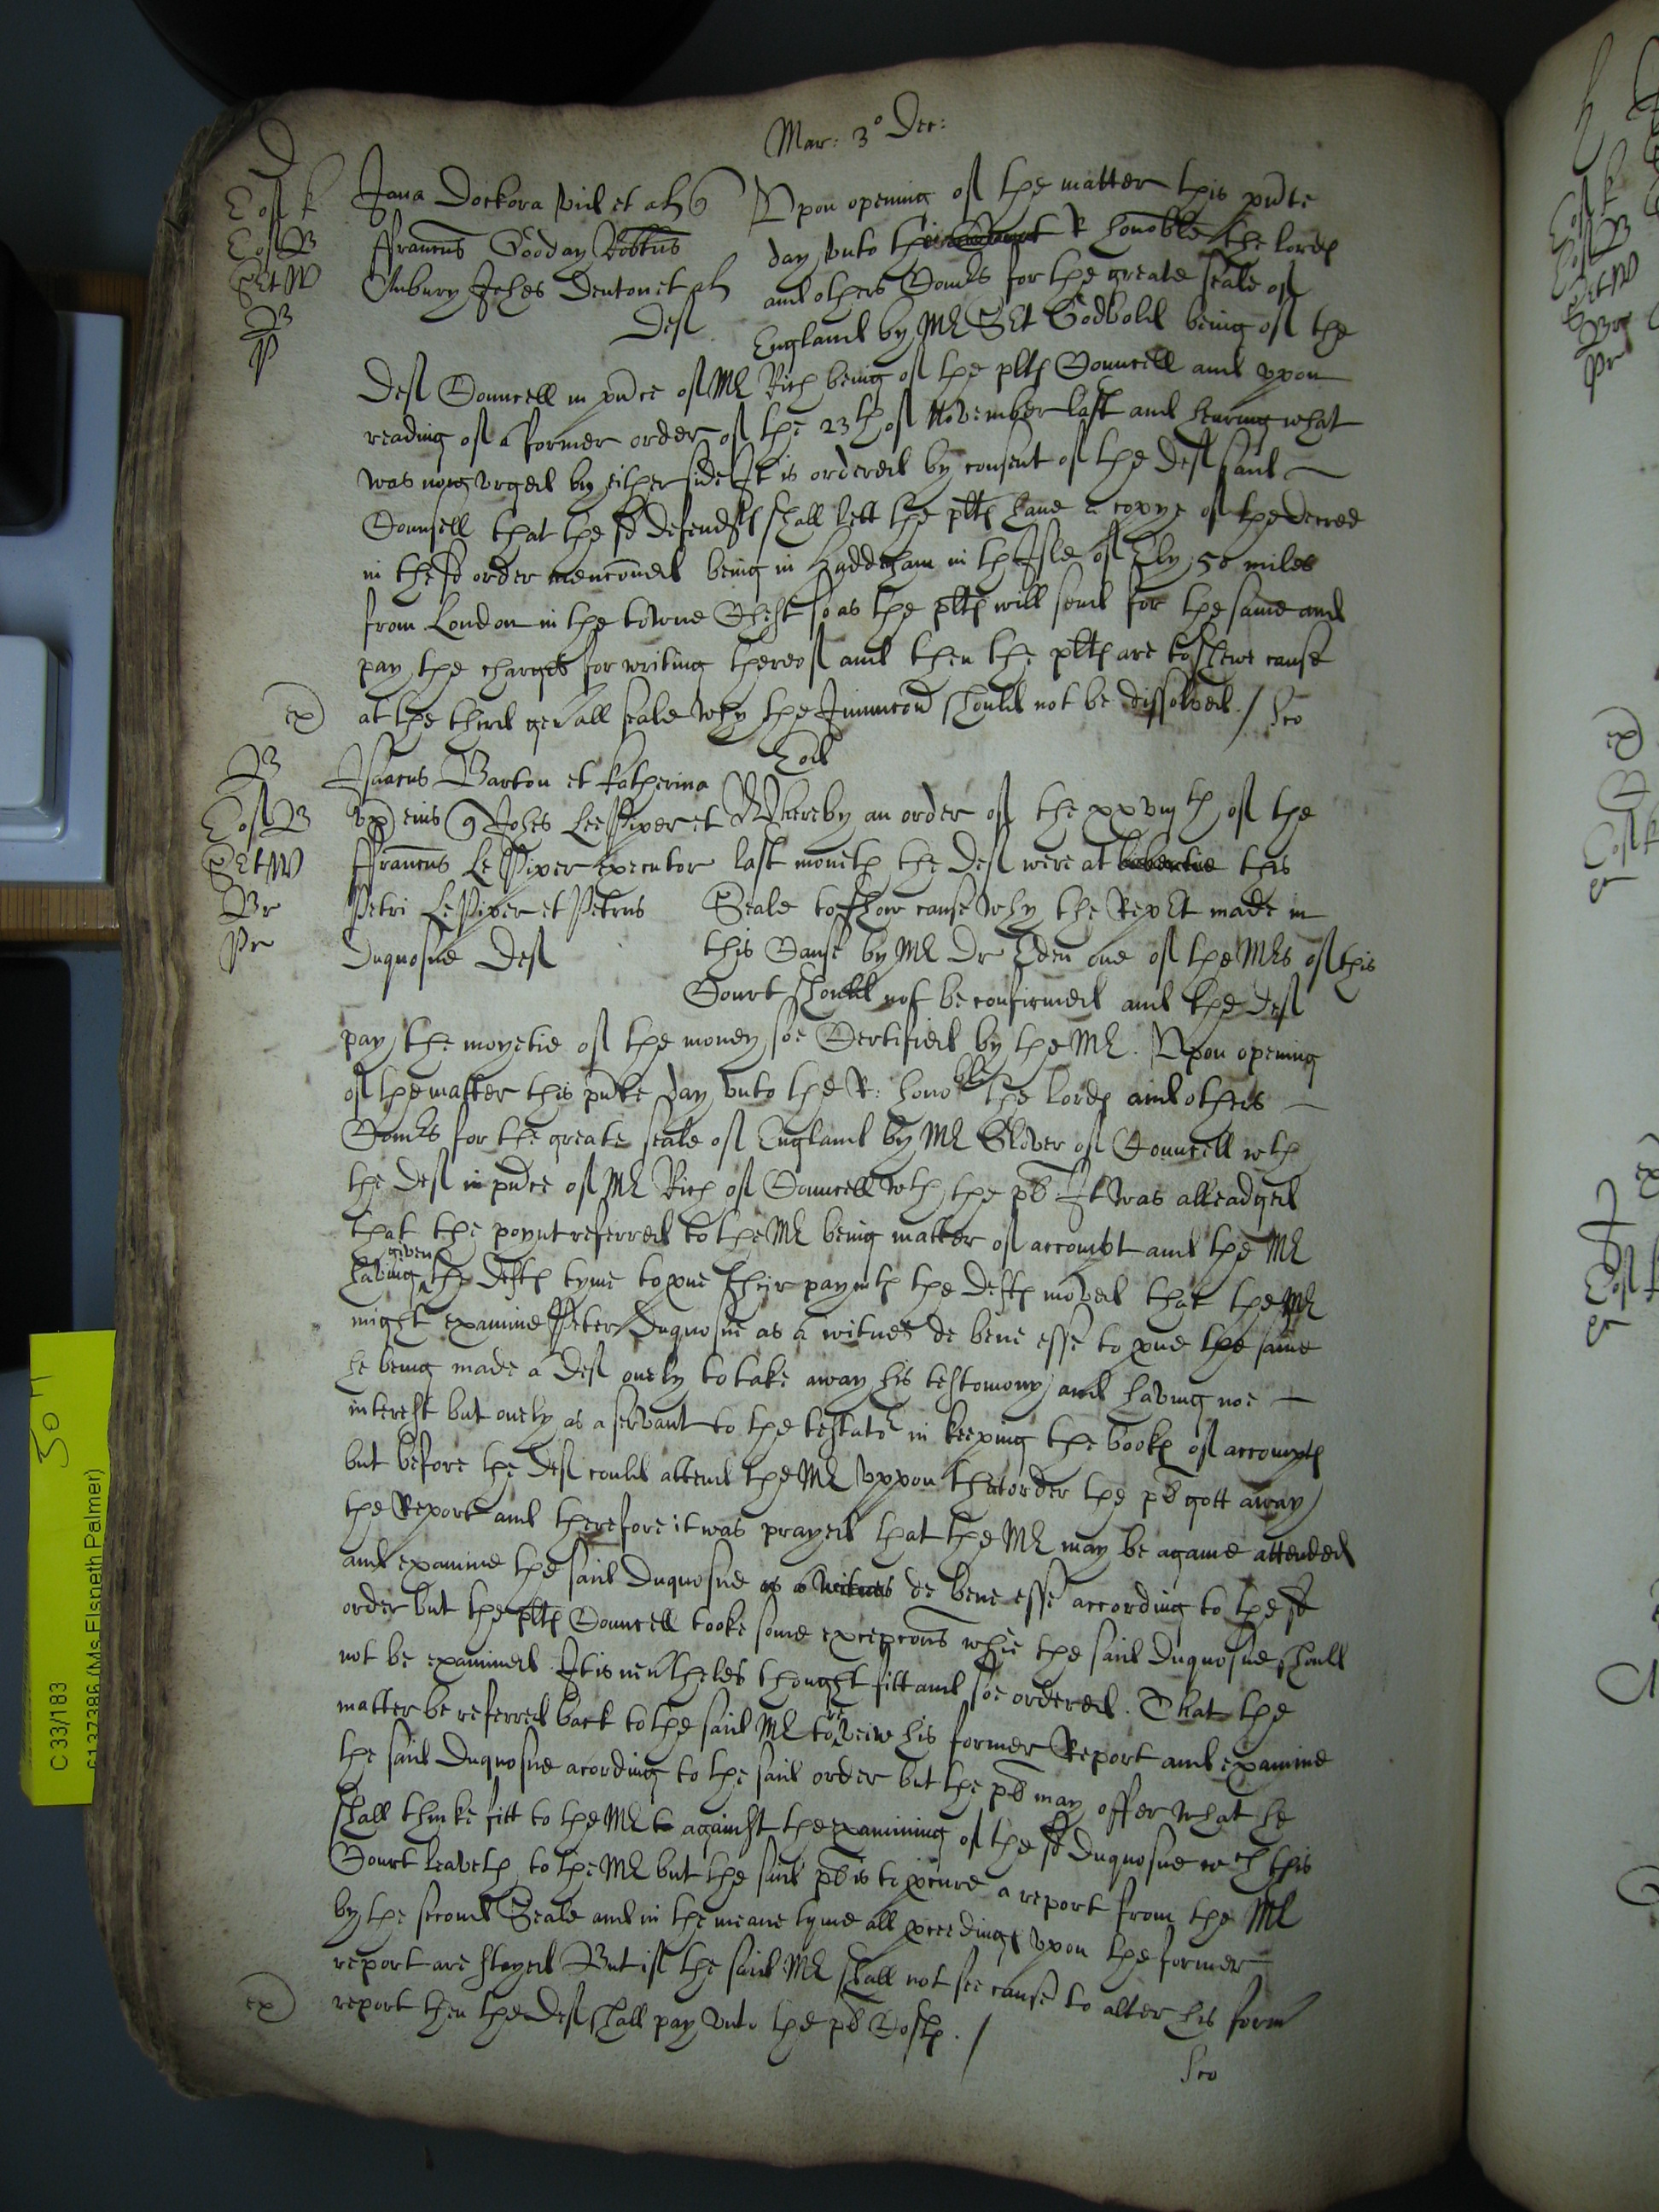 Mar: 3° Dec:
D
Jana Dockora vid et al
Eos k
Eos B
SEt W
B
P
ffrancus Gooday Robtus
Anbury Johes Denton et al
Def
Upon opening of the matter this pnte
day unto the R honoble the lords
and others Comrs for the greate seale of
England by Mr SEt Godbold being of the
Def Councell in pnce of Mr Rich being of the plts Councell and upon
reading of a former order of the 23th of November last and hearing what
was now urged by either side It is ordered by consent of the Def said
Counsell that the sd defendts shall lett the plts have a copye of the decree
in the sd order menconed being in Haddenham in th Isle of Ely 50 miles
from London in the towne Chest so as the plts will send for the same and
pay the charges for writing thereof and then the plts are to shewe cause
at the third genall seale why the Iniunccon should not be dissolved /
ex
Eod
B
Eos B
SEt W
Br
Pr
Isaacus Barton et Katherina
ux eius Johes Lee Piper et
ffrancus Le Piper executor
Petri Le Piper et Petrus
Duquosne Def
Whereby an order of the xxviijth of the
last moneth the Def were at libertie this
Seale to show cause why the Report made in
this Cause by Mr Dr Eden one of the Mrs of this
Court should not be confirmed and the Def
pay the moyetie of the money soe Certified by the Mr. Upon opening
of the matter this pnte day unto the R: honoble the lords and others
Comrs for the greate seale of England by Mr Glover of Councell wth
the Def in pnce of Mr Rich of Councell wth the pl It was alleadged
that the poynt referred to the Mr being matter of accompt and the Mr
having given the Defts tyme to pve their paymts the Defts moved that the Mr
might examine Peter Duquosne as a witnes de bene esse to pve the same
he being made a Def onely to take away his testomony and having noe
interest but onely as a servant to the testator in keeping the books of accompts
but before the Def could attend the Mr uppon that order the pl gott away
the Report and therefore it was prayed that the Mr may be againe attended
and examine the said Duquosne as a witnes de bene esse according to the sd
order but the plts Councell tooke some excepcons whie the said Duquosne should
not be examined It is nevtheles thought fitt and soe ordered. That the
matter be referred back to the said Mr to reveiw his former Report and examine
the said Duquosne acording to the said order but the pl may offer what he
shall thinke fitt to the Mr to against the examining of the sd Duquosne wch this
Court leaveth to the Mr but the said pl is to pcure a report from the Mr
by the second Seale and in the meane tyme all pceedings upon the former
report are stayed But if the said Mr shall not see cause to alter his form
report then the Def shall pay unto the pl Costs. /
ex
C 33/183
(Ms Elspeth Palmer)